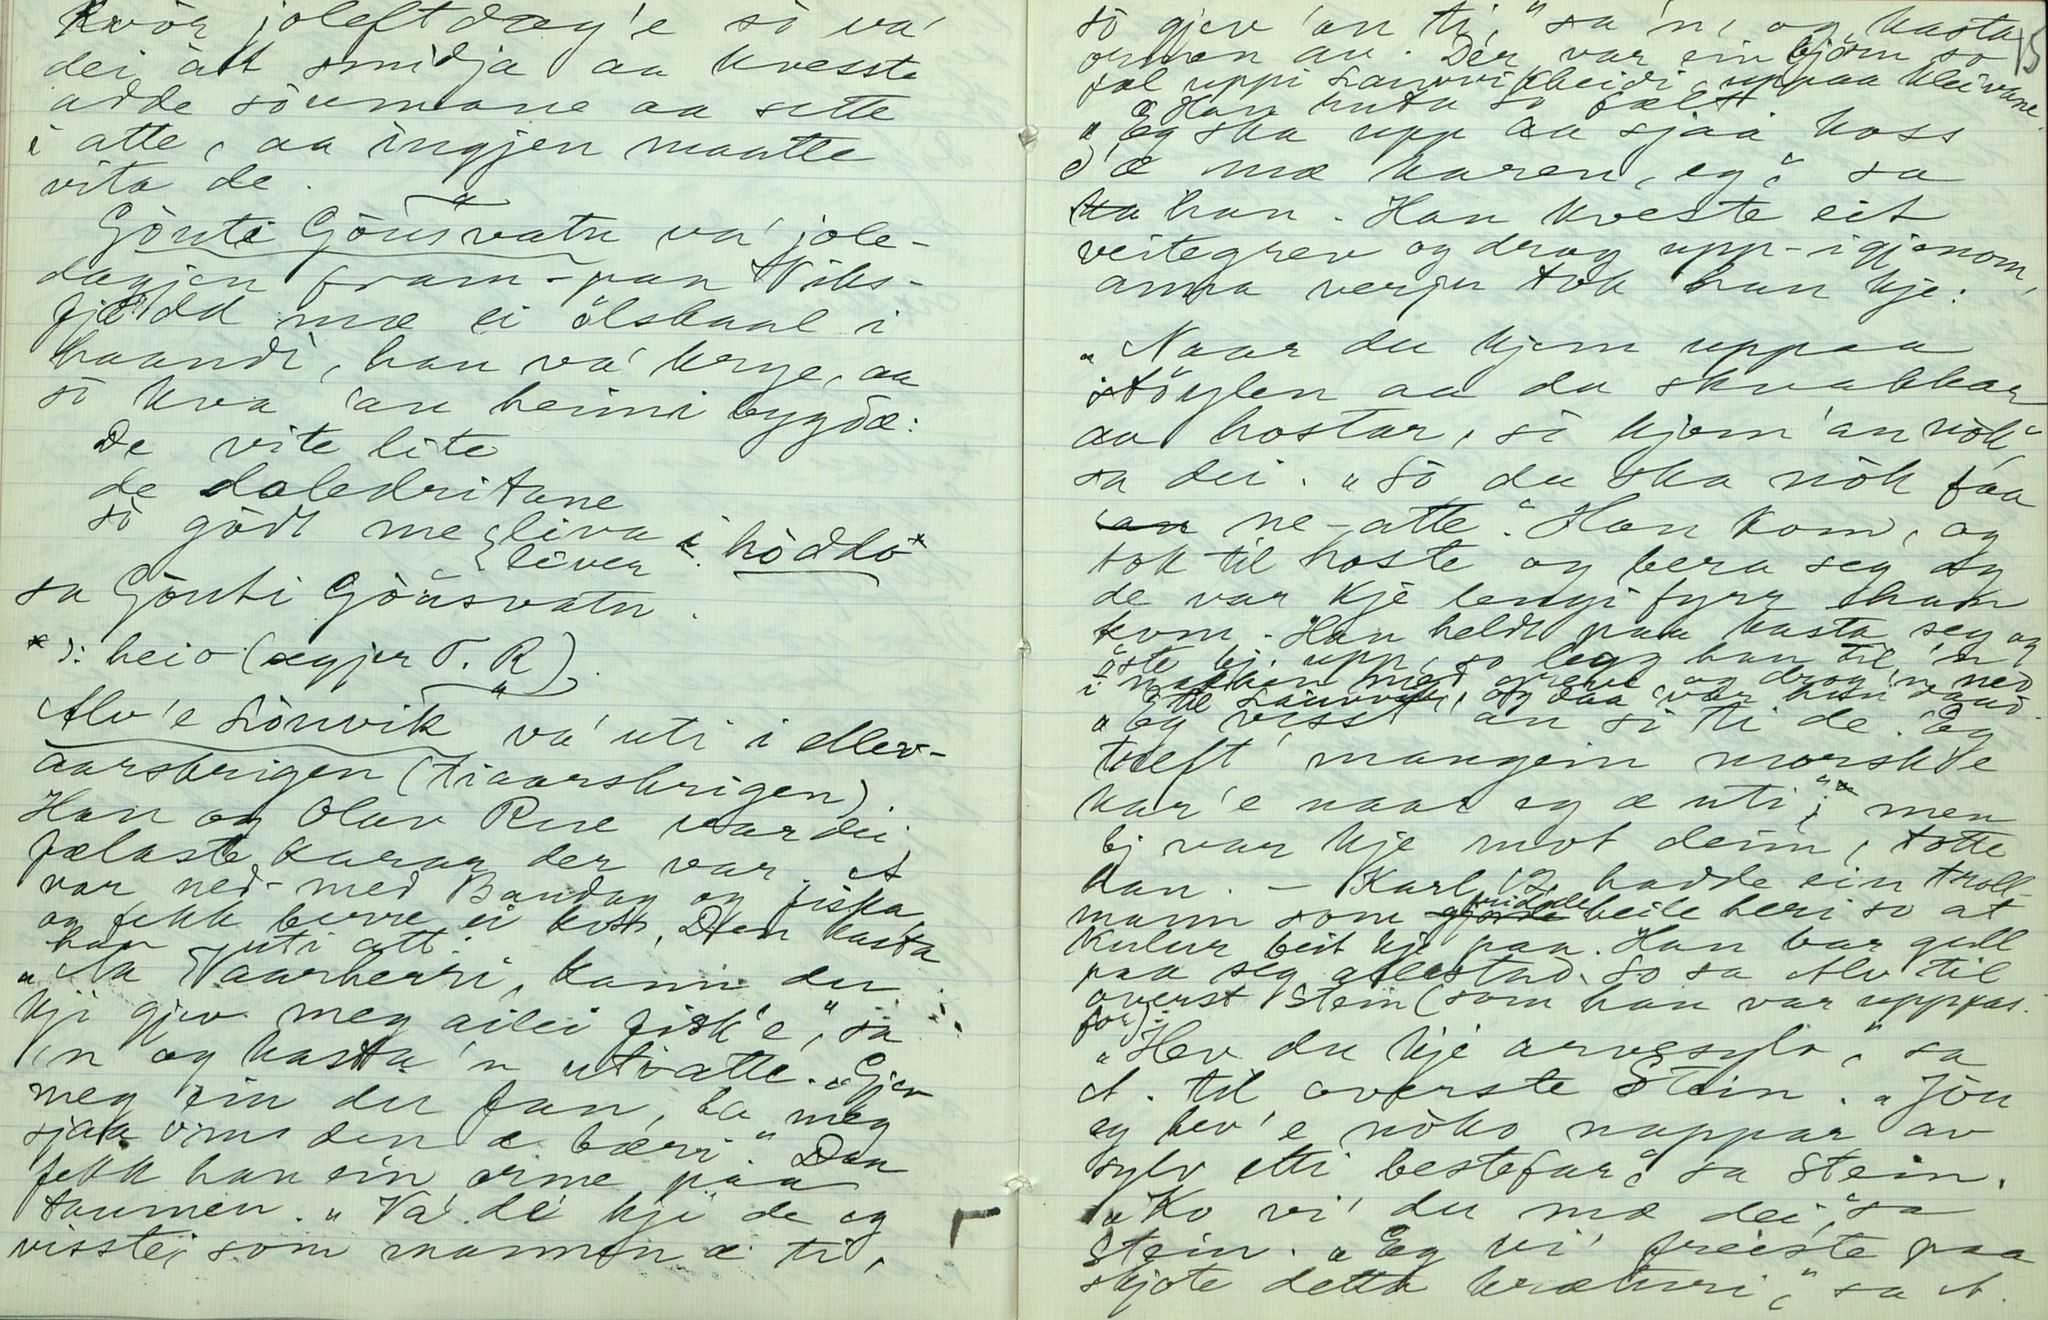 Kvòr joleftdag'e sò va'
dei åt smidja aa kvesste
adde sòumane aa sette
i atte, aa ingjen maatte
vita de.
Gònti Gòusvatn va' jole-
dagjen fram-paa Viks-
fjødd mæ ei ölskaal i
haandi, han va' krye, aa
sò kva 'an heimi bygdæ:
De vite lite
de daledritane
sò gödt me liva i hòddò*
liver
sa Gònti Gòusvatn.
* ɔ: heio (segjer T. R.)
Alv'e Lònvik va' uti i ellev-
aarskrigen (tiaarskrigen).
Han og Olav Rue var dei
fælaste karar der var. A
var ned-med Bandag og fiska,
og fekk berre ei kots. Den kasta
han uti att:
"Aa Vaarherri, kann du
kji gjev meg ailei fisk'e," sa
'n og kasta 'n utiatte. "Gjev
meg ein du fan, la meg
sjaa om den æ bæri." Daa
fekk han ein orme paa
taumen. "Va' de' kji de eg
visste, som mannen æ ti,
15
sò gjev 'an ti," sa 'n, og kasta
ormen av. Der var ein bjørn so
fæl uppi Lauvvikheidi, uppaa kleivane.
Han huda so fælt.
"Eg ska upp aa sjaa koss
d'æ mæ karen, eg," sa
han. Han kveste eit
veitegrev og drog upp-igjenom,
anna verju tok han kje.
"Naar du kjem uppaa
støylen aa du skvakkar
aa hostar, sò kjem 'an nòk,"
sa dei. "Sò du ska nòk faa
'an ne-atte." Han kom, og
tok til hoste og bera seg og
de var kje lengi fyrr han
kom. Han heldt paa kasta seg og
øste bj. upp, so legg han til 'n
i nakken med grevet og drog 'n ned
til Lauvvik, og daa var han daud.
"Eg visst' an sò ti de. Eg
træft' mangein morske
kar'e naar eg æ uti," men
bj var kje mot deim, totte
han. – Karl 12. hadde ein troll-
mann som fridde heile heri so at
kulur beit kje paa. Han bar gull
paa seg allestad. So sa Alv til
overst Stein (som han var uppas.
for):
"Hev du kje arvesylv," sa
A. til overste Stein. "Jòu
eg hev'e nòko nappar av
sylv etti bestefar," sa Stein.
"Ko vi' du mæ dei," sa
Stein. "Eg vi' freiste paa
skjote detta kræturi," sa A.